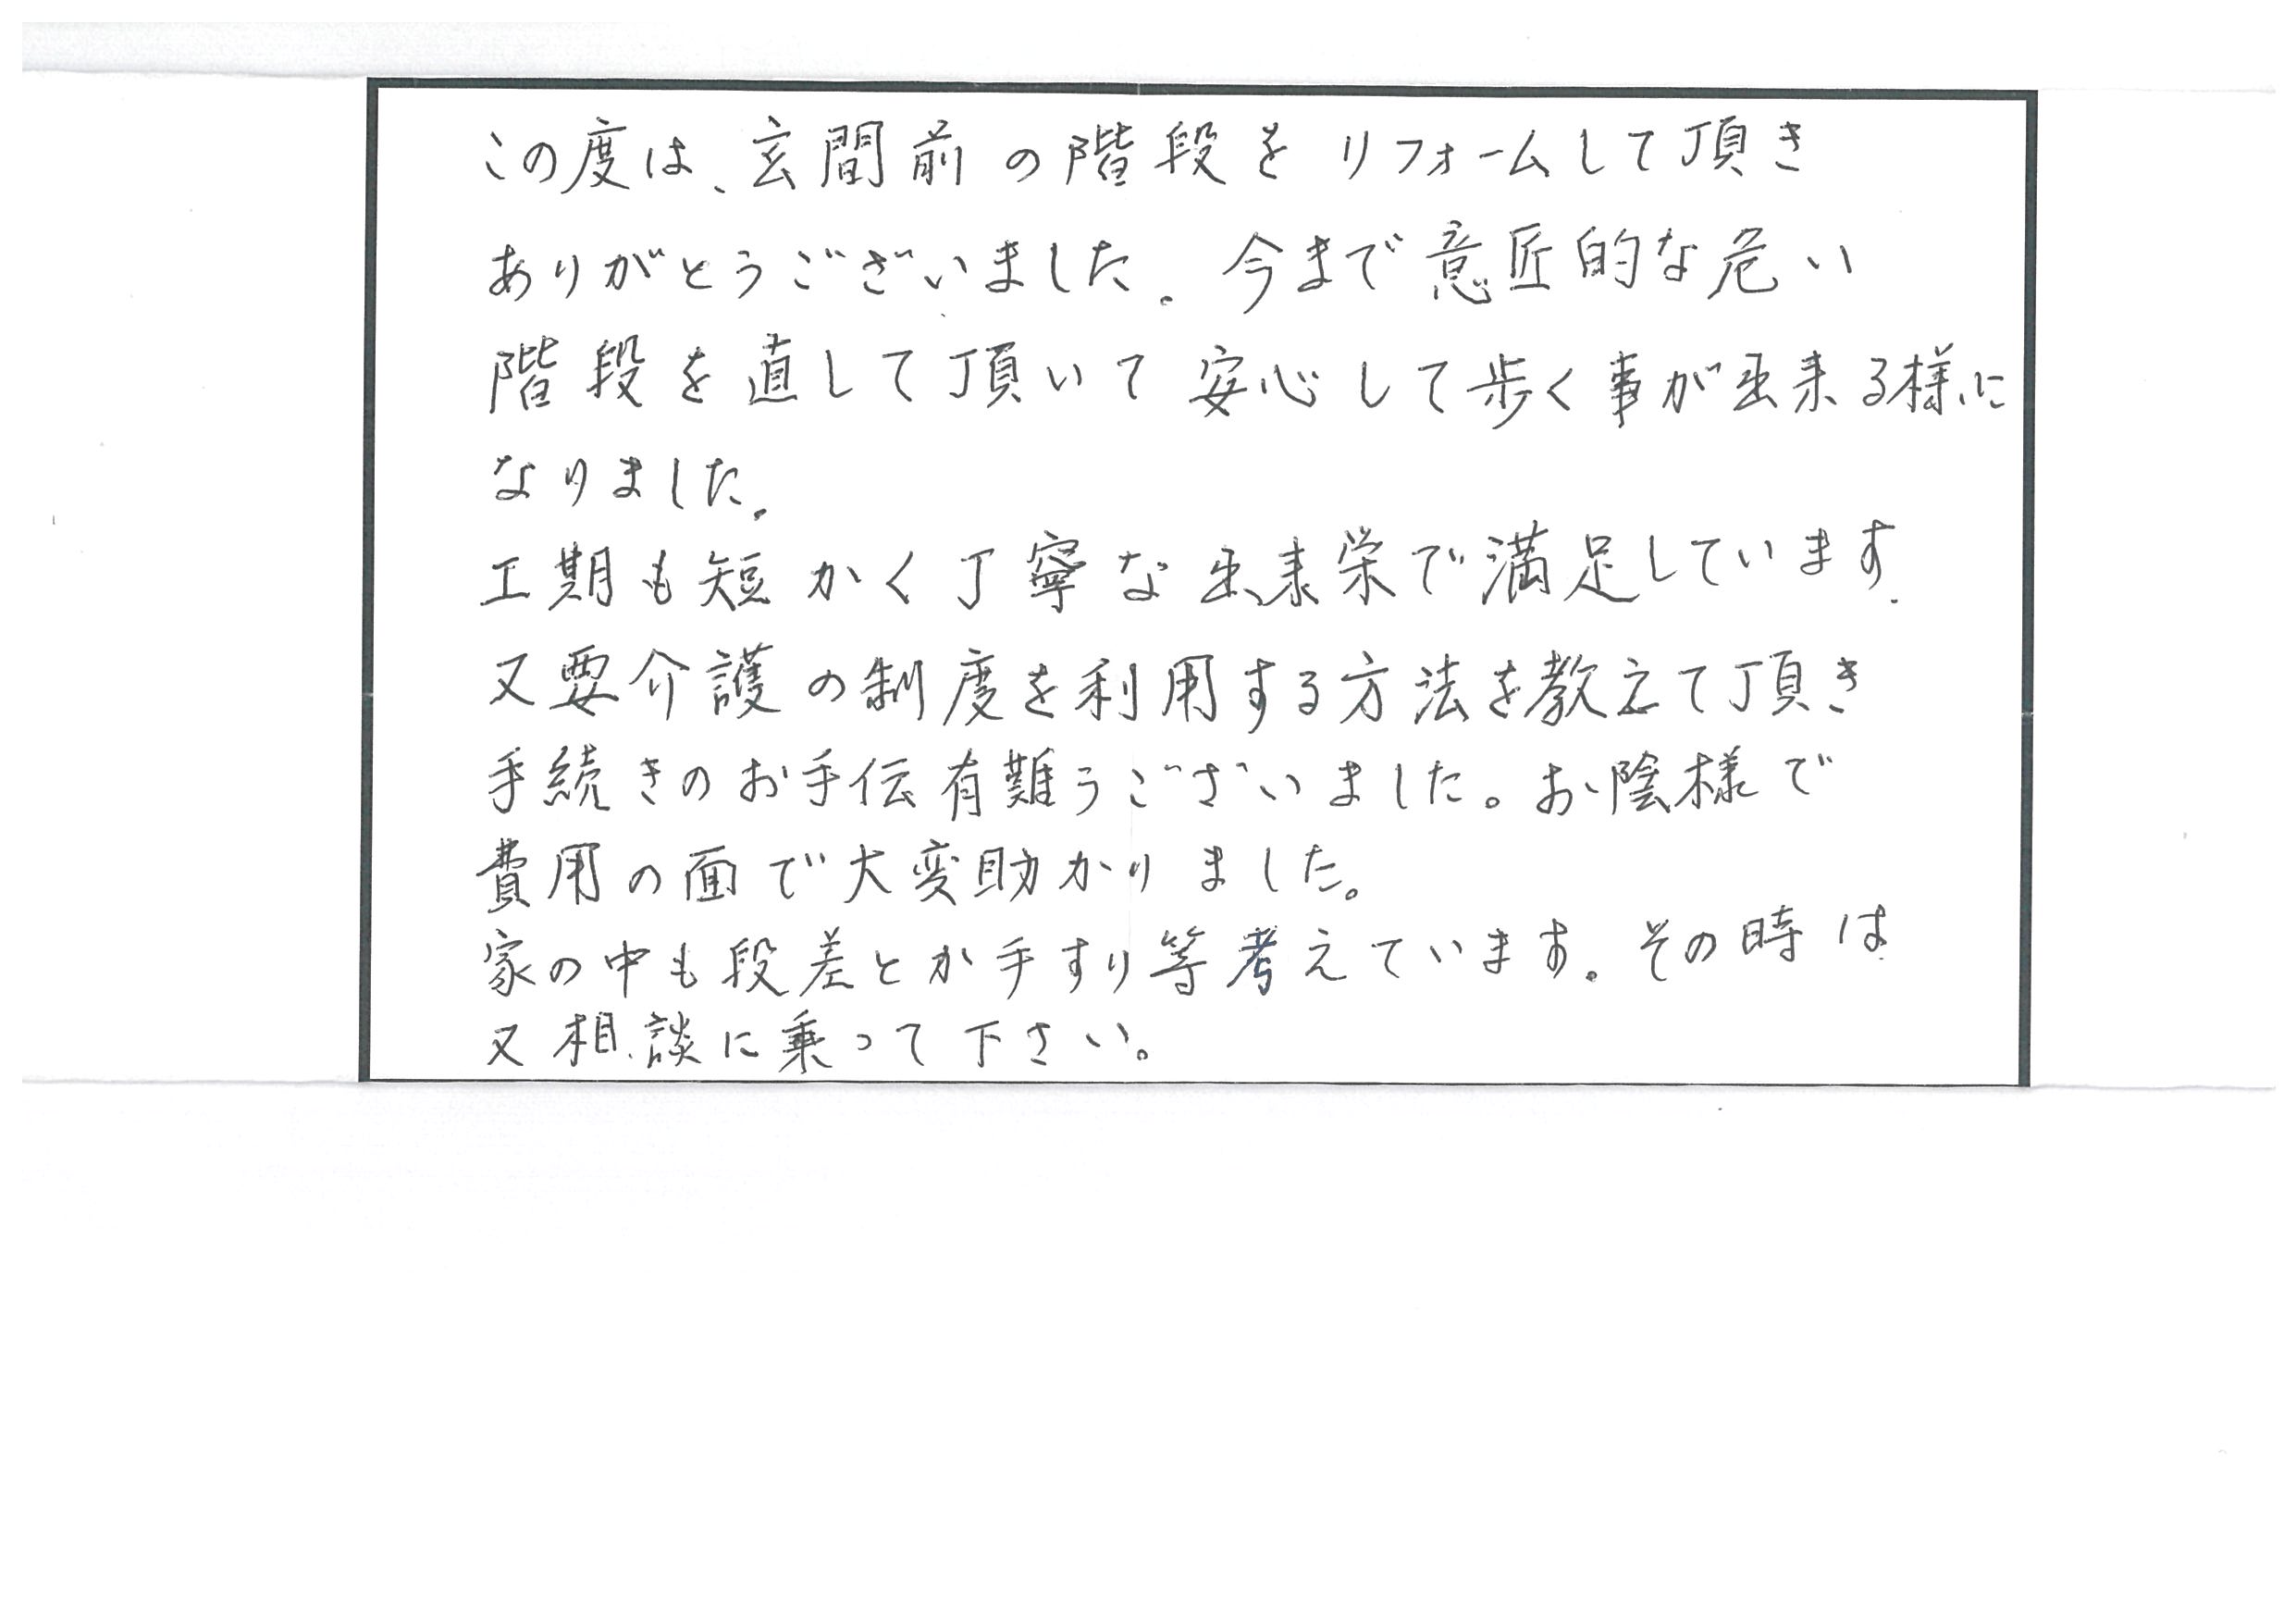 この度は、玄間前の階段をリフォームして頂き
ありがとうございました。今まで意匠的な危い
階段を直して頂いて安心して歩く事が出来る様に
なりました。
工期も短かく丁寧な出来栄で満足しています。
又要介護の制度を利用する方法を教えて頂き
手続きのお手伝有難うございました。お陰様で
費用の面で大変助かりました。
家の中も段差とか手すり等考えています。その時は
又相談に乗って下さい。